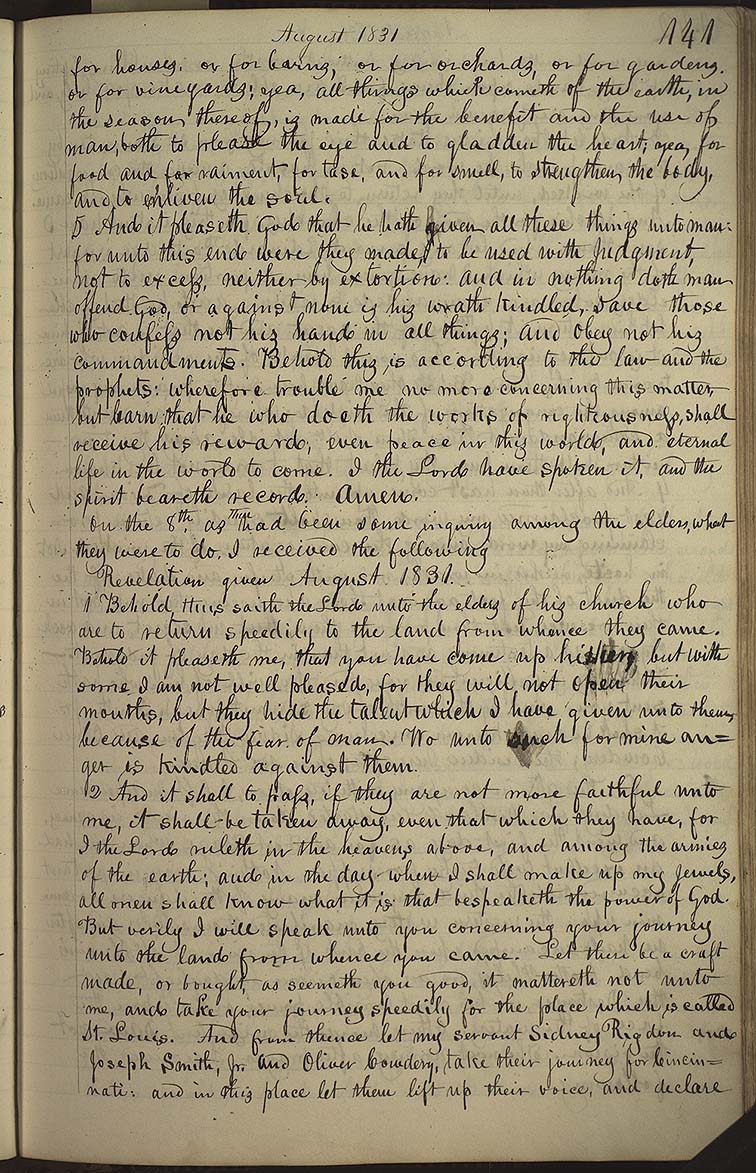 August 1831
141
for houses, or for barns, or for orchards, or for gardens.
or for vineyards; yea, all things which cometh of the earth, in
the season, thereof, is made for the benefit and the use of
man, both to please the eye and to gladden the heart; yea, for
food and for raiment, for tase, and for smell, to strengthen, the body,
and to enliven the soul.
5 And it pleaseth God that he hath given all these things unto man:
for unto this end were they made, to be used with Judgment,
not to excess, neither by extortion: and in nothing doth man
offend God, or against none is his wrath kindled, save those
who confess not his hand in all things; and obey not his
commandments. Behold this is according to the law and the
prophets: wherefore trouble me no more concerning this matter,
but learn that he who doeth the works of righteousness, shall
receive his reward, even peace in this world, and eternal
life in the world to come. I the Lord have spoken it, and the
spirit beareth record. Amen.
On the 8th, as there had been some inquiry among the elders, what
they were to do, I received the following
Revelation given August 1831.
1 Behold, thus saith the Lord unto the elders of his church who
are to return speedily to the land from whence they came.
Behold it pleaseth me, that you have come up hither; but with
some I am not well pleased, for they will not open their
mouths, but they hide the talent which I have given unto them,
because of the fear of man. Wo unto such for mine an=
ger is kindled against them.
2 And it shall to pass, if they are not more faithful unto
me, it shall be taken away, even that which they have, for
I the Lord ruleth in the heavens above, and among the armies
of the earth; and in the day when I shall make up my Jewels,
all men shall know what it is that bespeaketh the power of God.
But verily I will speak unto you concerning your journey
unto the land from whence you came. Let there be a craft
made, or bought, as seemeth you good, it mattereth not unto
me, and take your journey speedily for the place which is called
St. Louis. And from thence let my servant Sidney Rigdon and
Joseph Smith, Jr. and Oliver Cowdery, take their journey for Cincin=
nati: and in this place let them lift up their voice, and declare